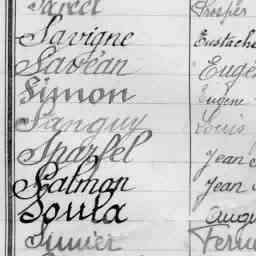 Savigne Eustache
Savéan Eugè
Simon Eugène
Sanguy Louis
Sparfel Jean
Salmon Jean
Soula Augu
Sunier Fern